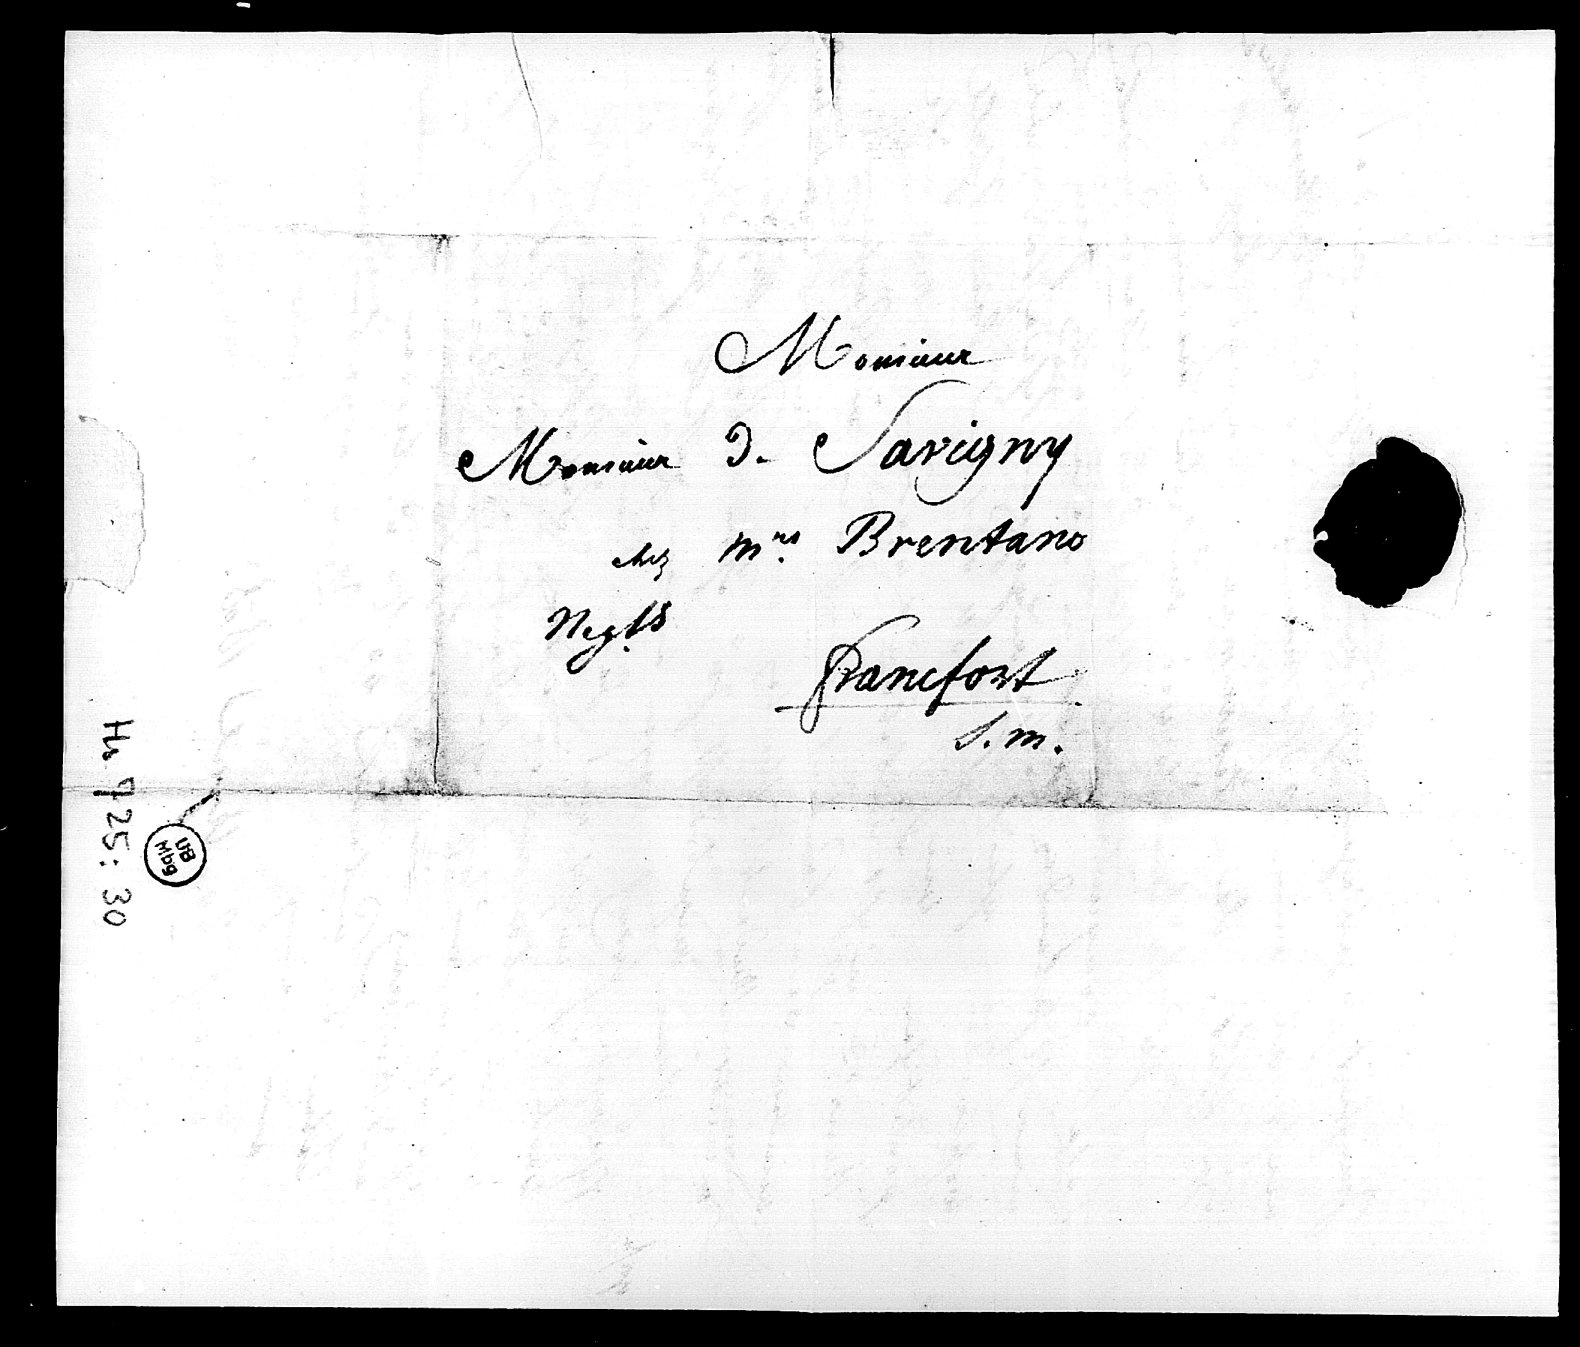 Monsieur
Monsieur D. Savigny
chez Mrs. Brentano
Negts
Francfort
s. m.
Hs 725: 30
UB
Mbg